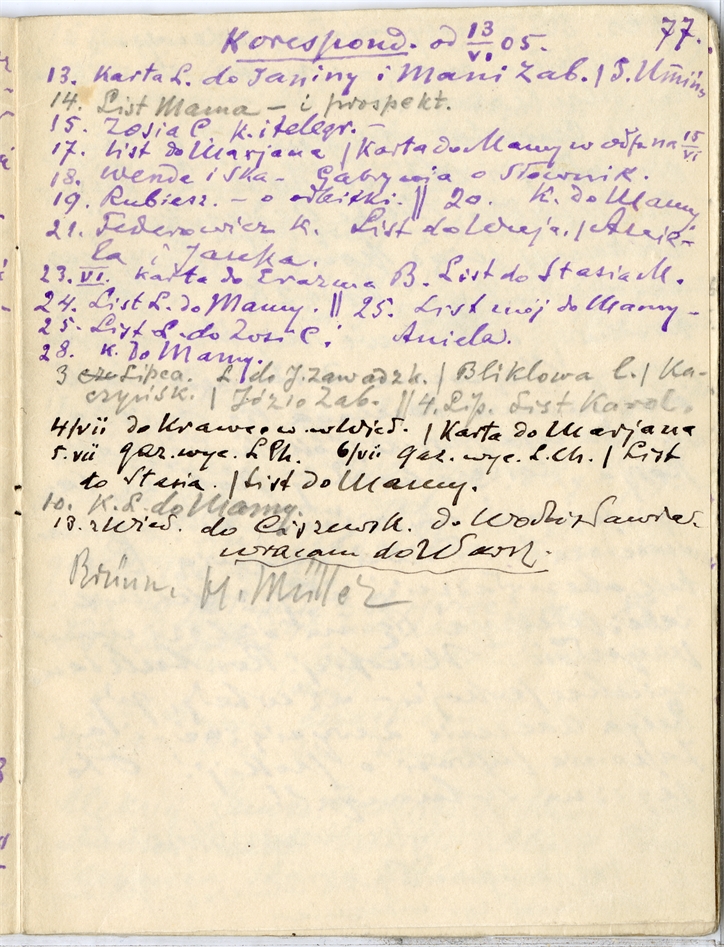 77.
Korespond. od 13/VI 05.
13. Karta L. do Janiny i Mani Zab. | T. Umiń,
14. List Mama – i prospekt.
15. Zosia C. k. i telegr. –
17. List do Marjana | Karta do Mamy w odp. na 15/VI
18. Wende i Ska – o Słownik.
19. Rubiesz. – o odbitki. || 20. K. do Mamy
21. Federowicz K. List do | Anie-
la i Janka.
23. VI. Karta do Erazma B. List do Stasia M.
24. List L. do Mamy. || 25. List mój do Mamy –
25. List L. do Zosi C. Aniela.
28. K. do Mamy.
3 Lipca. L. do J. Zawadzk. | Bliklowa L. | Ka-
czyńsk. | Józio Zab. || 4. Lip. List Karol.
4/VII do w Wied. | Karta do Marjana
5. VII gaz. wyc. L. Ch. 6/VII gaz. wyc. L. Ch. | List
do Stasia. | List do Mamy.
10. K. L. do Mamy.
18. z Wied. do Ciszewsk. do Wodzisławia.
wracam do Warsz.
Brünn. H. Müller